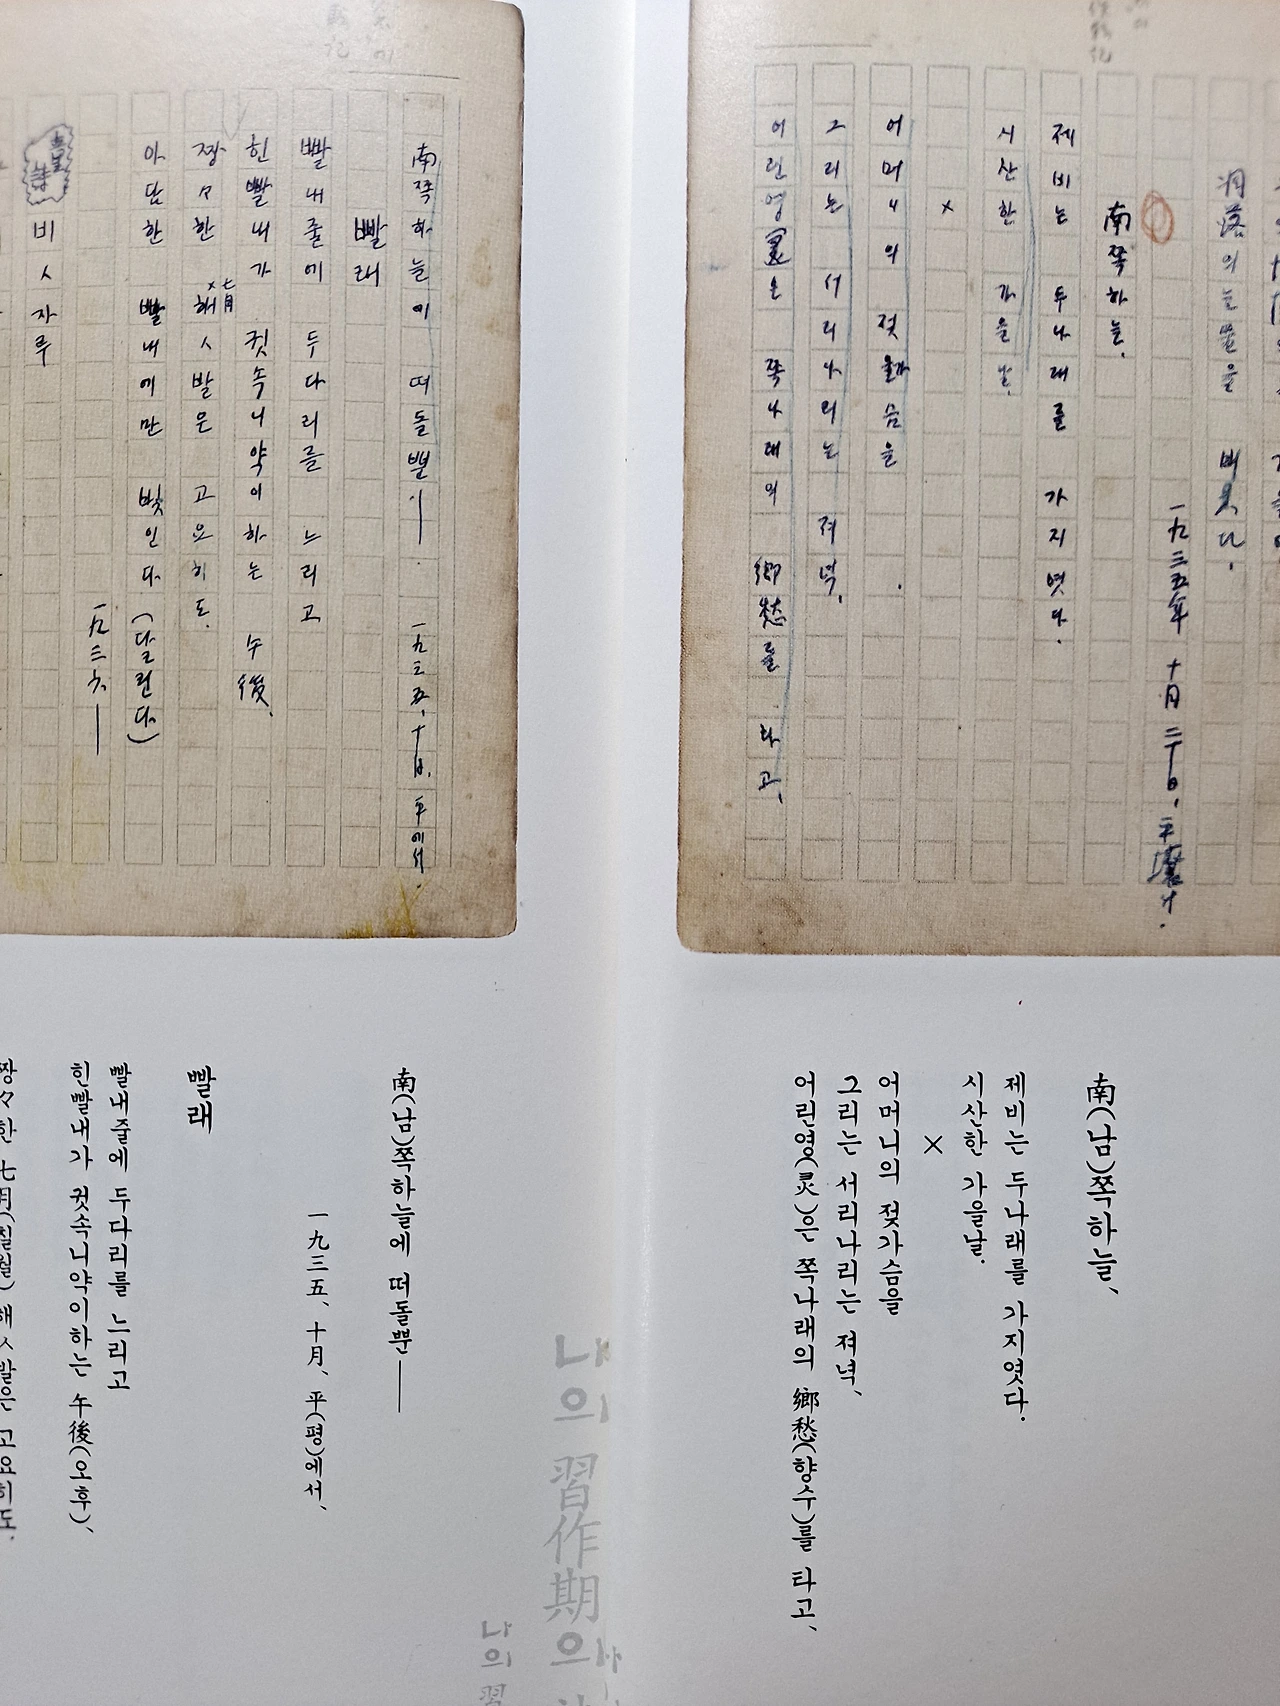 凋落의눈물을
一九三五年 十月 二十日, 平壤서.
南쪽하늘.
제비는 두나래를 가지엿다.
시산한 가을날.
×
어머니의 젖가슴을
그리는 서리나리는 져녁,
어린영灵은 쪽나래의 鄕愁를 타고,
南(남)쪽하늘、
제비는 두나래를 가지엿다.
시산한 가을날.
×
어머니의 젖가슴을
그리는 서리나리는 져녁、
어린영(灵)은 쪽나래의 鄕愁(향수)를 타고、
南쪽하늘에 떠돌뿐—
一九三五. 十月. 平에서.
빨래
빨내줄에 두다리를 느리고
힌빨내가 귓속니약이하는 午後.
짱々한 七月 해ㅅ발은 고요히도.
아담한 빨내에만 빛인다. (달린다)
一九三六.—
童詩 비ㅅ자루
南(남)쪽하늘에 떠돌뿐——
一九三五、十月、平(평)에서、
빨래
빨내줄에 두다리를 느리고
힌빨내가 귓속니약이하는 午後(오후)、
짱々한 七月(칠월) 해ㅅ발은 고요히도.
나의 習作期의
나의 習